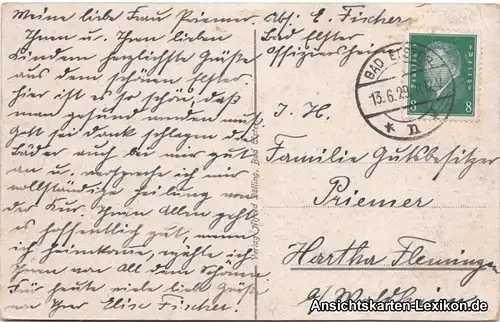 Meine liebe Frau Priemer.
Ihnen u. Ihren lieben
Kindern herzlichste Grüße
aus dem schönen Elster.
Hier ist es so schön, daß
man gesund werden muß.
Gott sei dank schlagen die
Bäder auch bei mir gut
an u. verspreche ich mir
vollständige Heilung von
der Kur. Ihnen Allen geht
es hoffentlich gut, wenn
ich heimkomme, erzähle ich
Ihnen von All dem Schönen
Für heute viele liebe Grüße
von Ihrer Elise Fischer.
Abs: E. Fischer
Bad Elster
Offiziersheim
BAD ELSTER
13.6.29
* n *
8 8
I. H.
Familie Gutsbesitzer
Priemer
Hartha Flemmingen
b/ Waldheim
Ansichtskarten-Lexikon.de